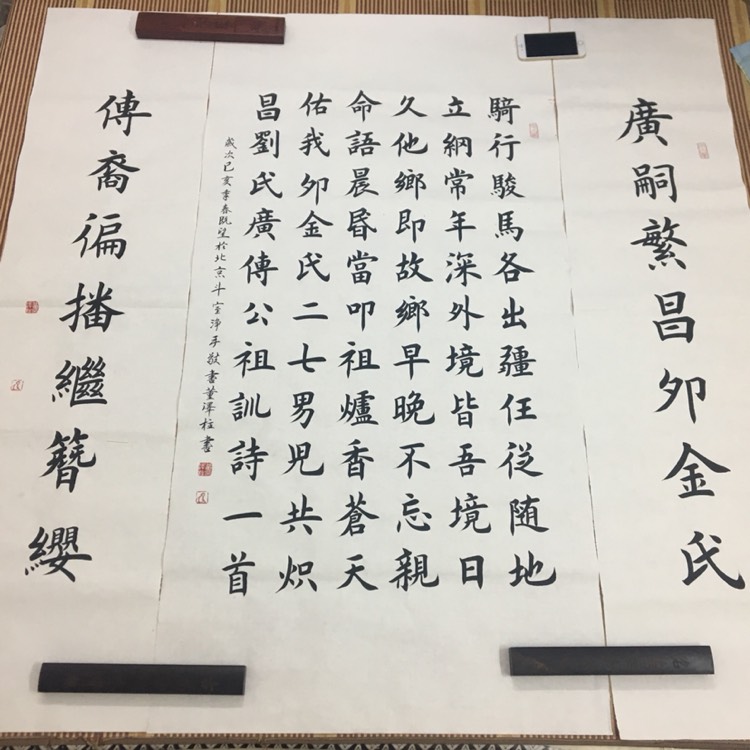 廣嗣繁昌夘金氏
騎行駿馬各出疆任從随地
立綱常年深外境皆吾境日
久他鄉即故鄉早晚不忘親
命語晨昬當叩祖爐香蒼天
佑我夘金氏二七男兒共炽
昌劉氏廣傳公祖訓詩一首
歲次己亥季春既望於北京斗室淨手敬書董澤柱書
傳裔徧播繼簪纓